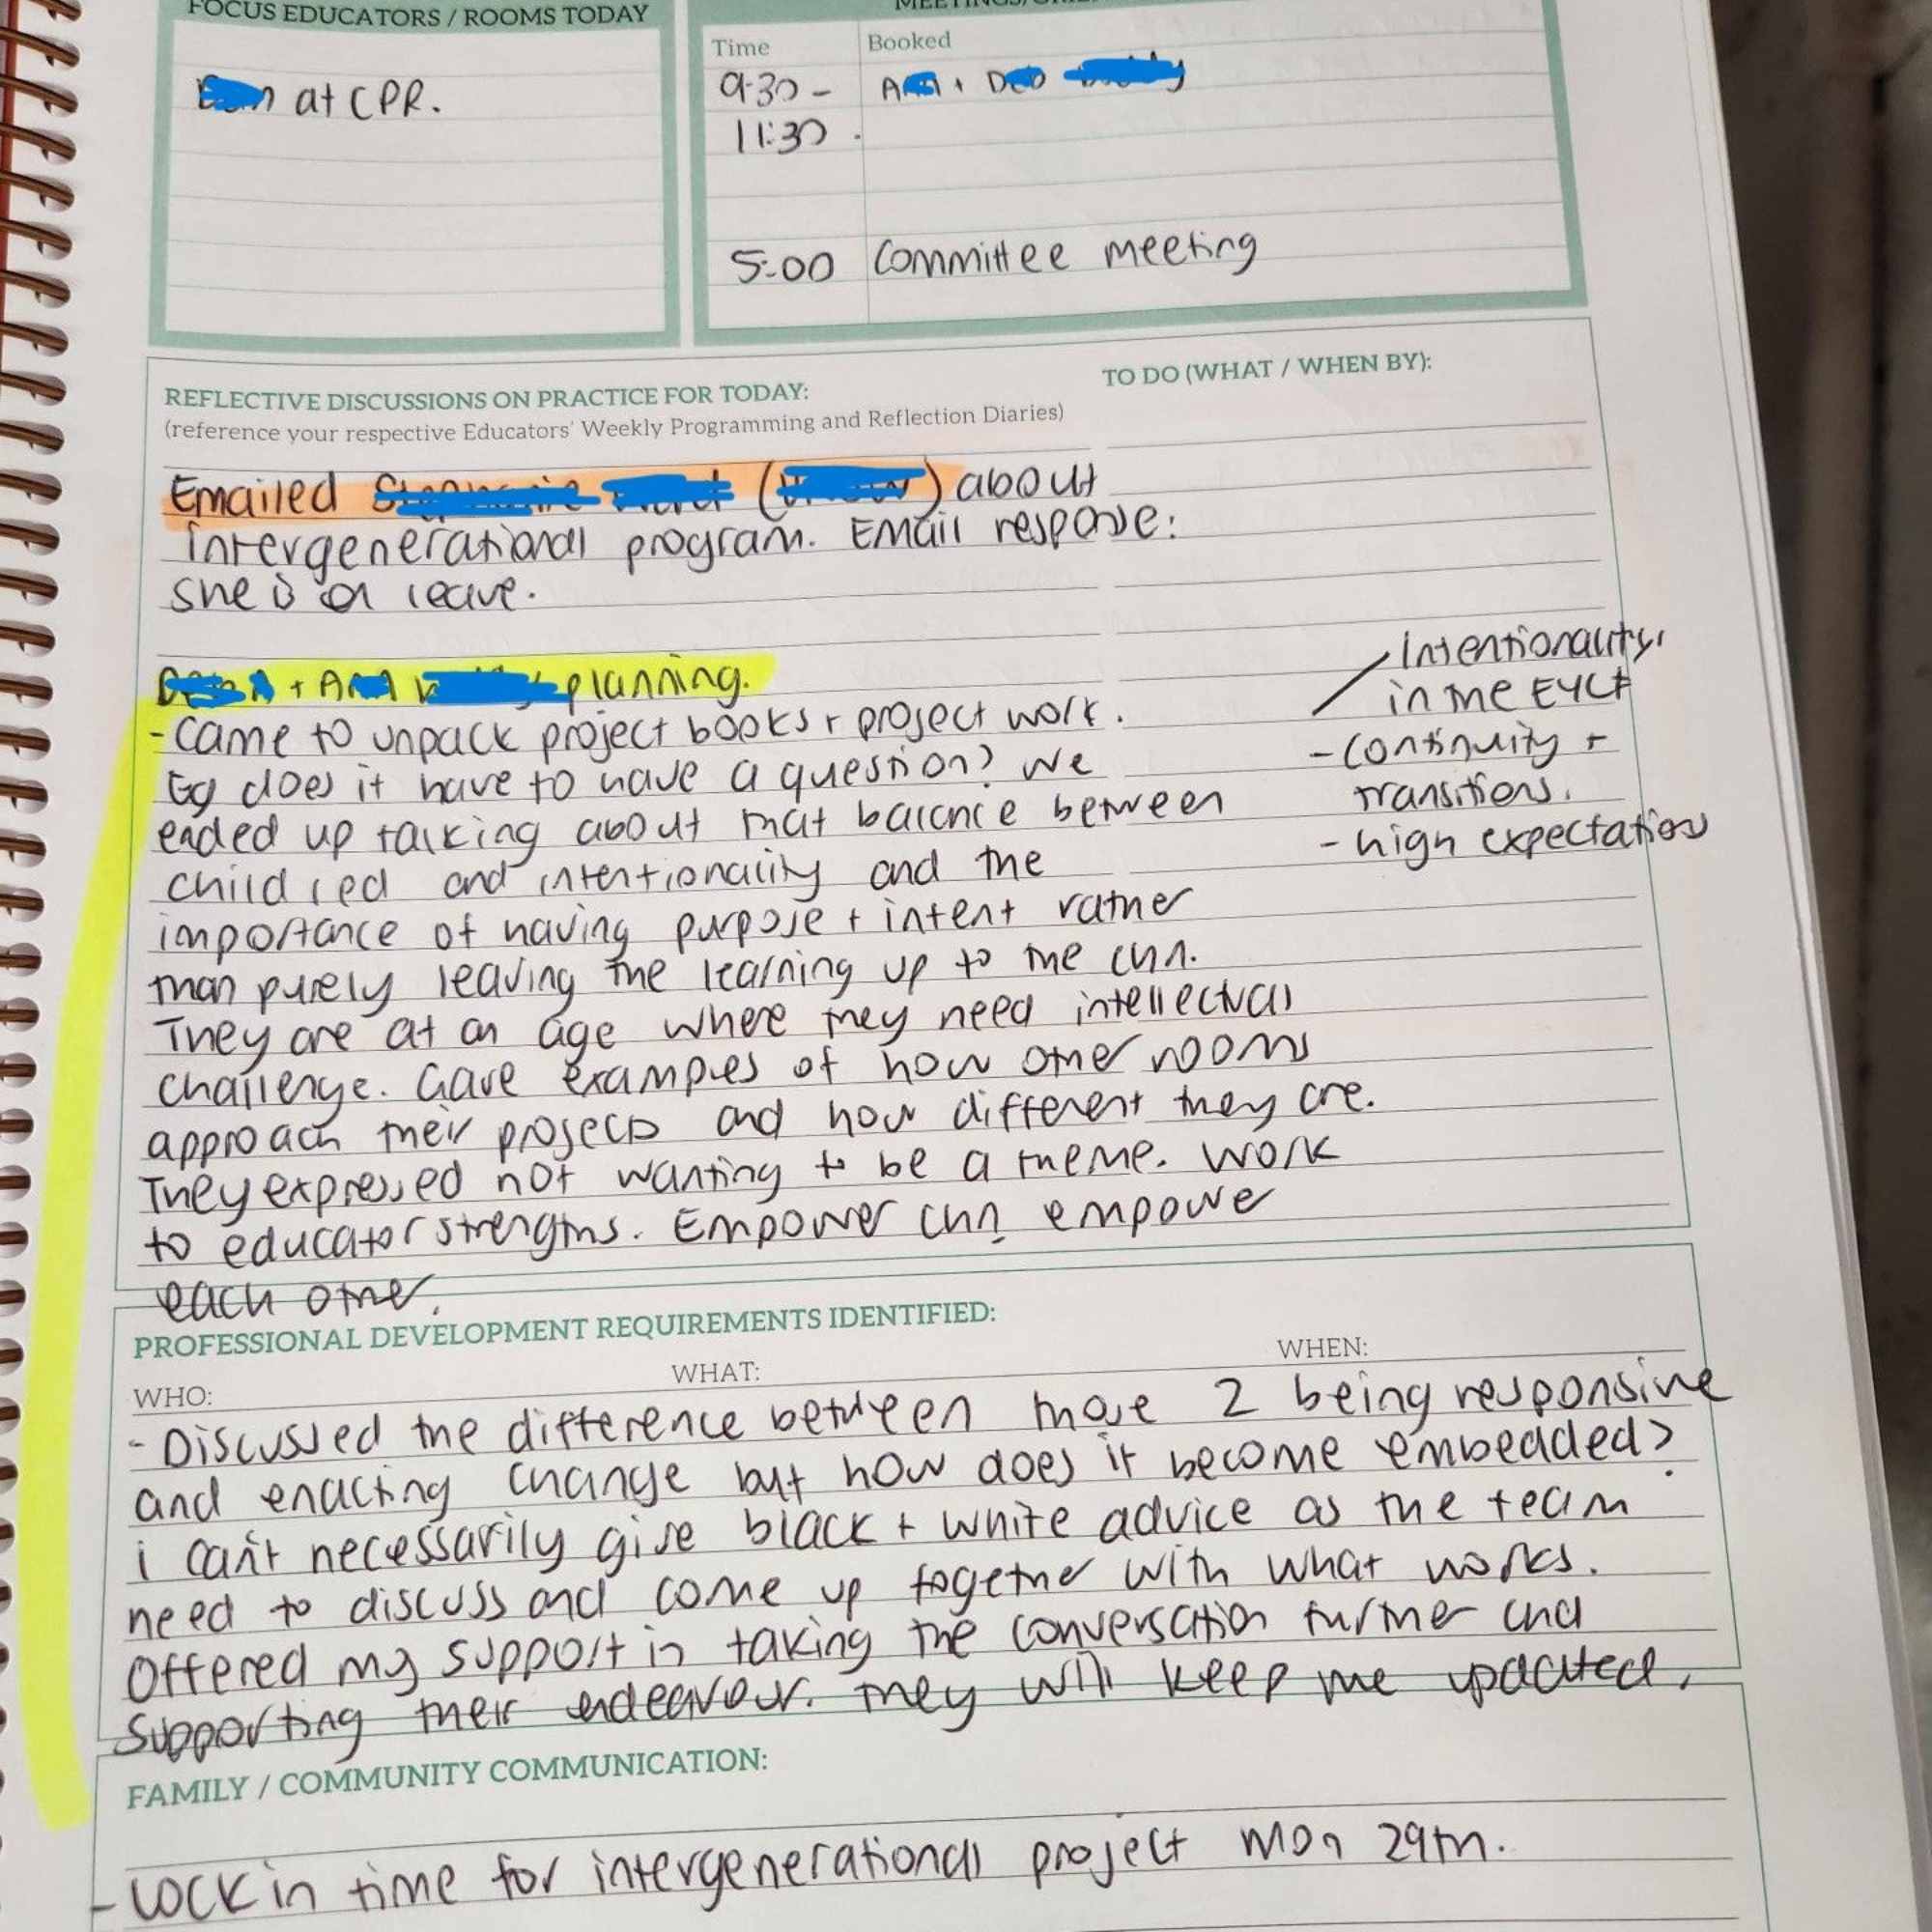 FOCUS EDUCATORS / ROOMS TODAY
at CPR.
Time Booked
9:30 -
11:30
5:00 Committee meeting
REFLECTIVE DISCUSSIONS ON PRACTICE FOR TODAY:
(reference your respective Educators' Weekly Programming and Reflection Diaries)
Emailed ( ) about
intergenerational program. Email response:
she is on leave.
planning.
- came to unpack project books + project work.
Eg does it have to have a question? We
ended up talking about that balance between
child led and intentionality and the
importance of having purpose + intent rather
than purely leaving the learning up to the chn.
They are at an age where they need intellectual
challenge. Gave examples of how other rooms
approach their projects and how different they are.
They expressed not wanting to be a theme. Work
to educator strengths. Empower chn empower
each other.
TO DO (WHAT / WHEN BY):
Intentionality
in the EYLF
- continuity +
transitions.
- high expectations
PROFESSIONAL DEVELOPMENT REQUIREMENTS IDENTIFIED:
WHO: WHAT: WHEN:
- Discussed the difference between those 2 being responsive
and enacting change but how does it become embedded?
i can't necessarily give black + white advice as the team
need to discuss and come up together with what works.
Offered my support in taking the conversation further and
supporting their endeavour. They will keep me updated.
FAMILY / COMMUNITY COMMUNICATION:
- Lock in time for intergenerational project Mon 29th.